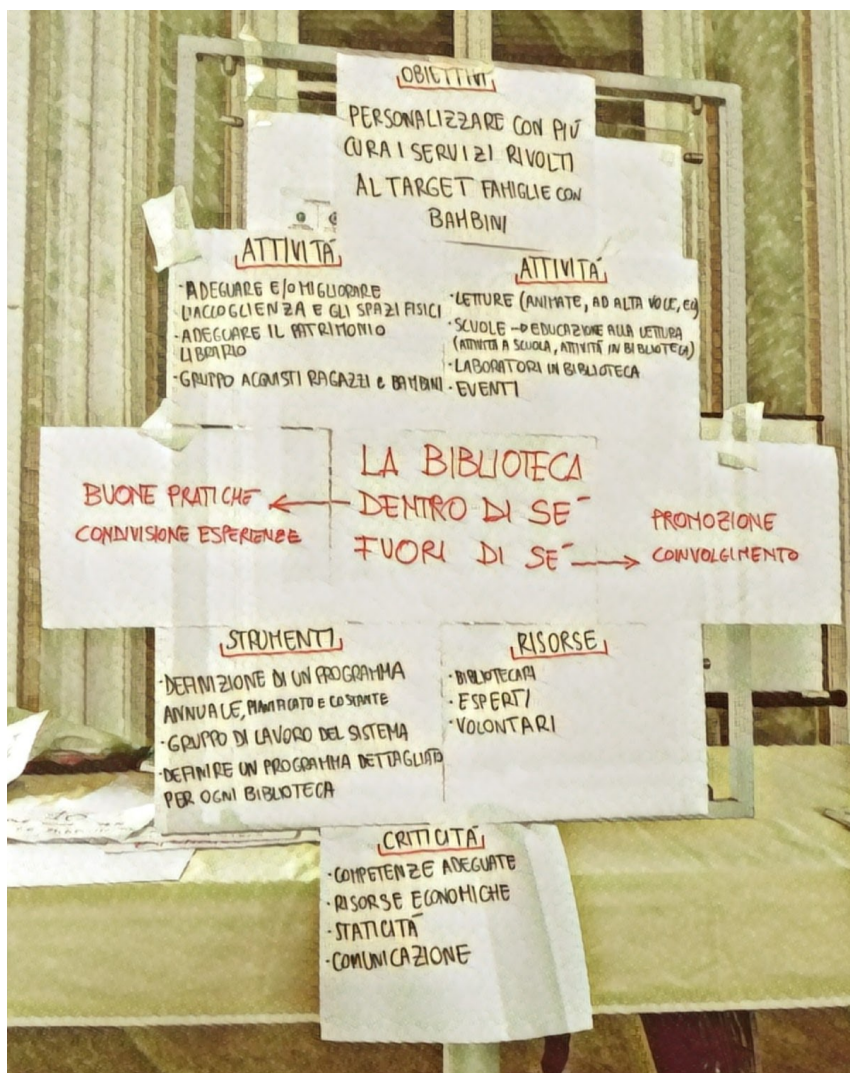 OBIETTIVI
PERSONALIZZARE CON PIÚ
CURA I SERVIZI RIVOLTI
AL TARGET FAMIGLIE CON
BAMBINI
ATTIVITÁ
· ADEGUARE E/O MIGLIORARE
L'ACCOGLIENZA E GLI SPAZI FISICI
· ADEGUARE IL PATRIMONIO
LIBRARIO
· GRUPPO ACQUISTI RAGAZZI e BAMBINI
ATTIVITÁ
· LETTURE (ANIMATE, AD ALTA VOCE,
· SCUOLE → EDUCAZIONE ALLA LETTURA
(ATTIVITÁ A SCUOLA, ATTIVITÁ IN BIBLIOTECA)
· LABORATORI IN BIBLIOTECA
· EVENTI
LA BIBLIOTECA
DENTRO DI SÉ
FUORI DI SÉ
BUONE PRATICHE
CONDIVISIONE ESPERIENZE
PROMOZIONE
COINVOLGIMENTO
STRUMENTI
· DEFINIZIONE DI UN PROGRAMMA
ANNUALE, PIANIFICATO E COSTANTE
· GRUPPO DI LAVORO DEL SISTEMA
· DEFINIRE UN PROGRAMMA DETTAGLIATO
PER OGNI BIBLIOTECA
RISORSE
· BIBLIOTECARI
· ESPERTI
· VOLONTARI
CRITICITÁ
· COMPETENZE ADEGUATE
· RISORSE ECONOMICHE
· STATICITÁ
· COMUNICAZIONE